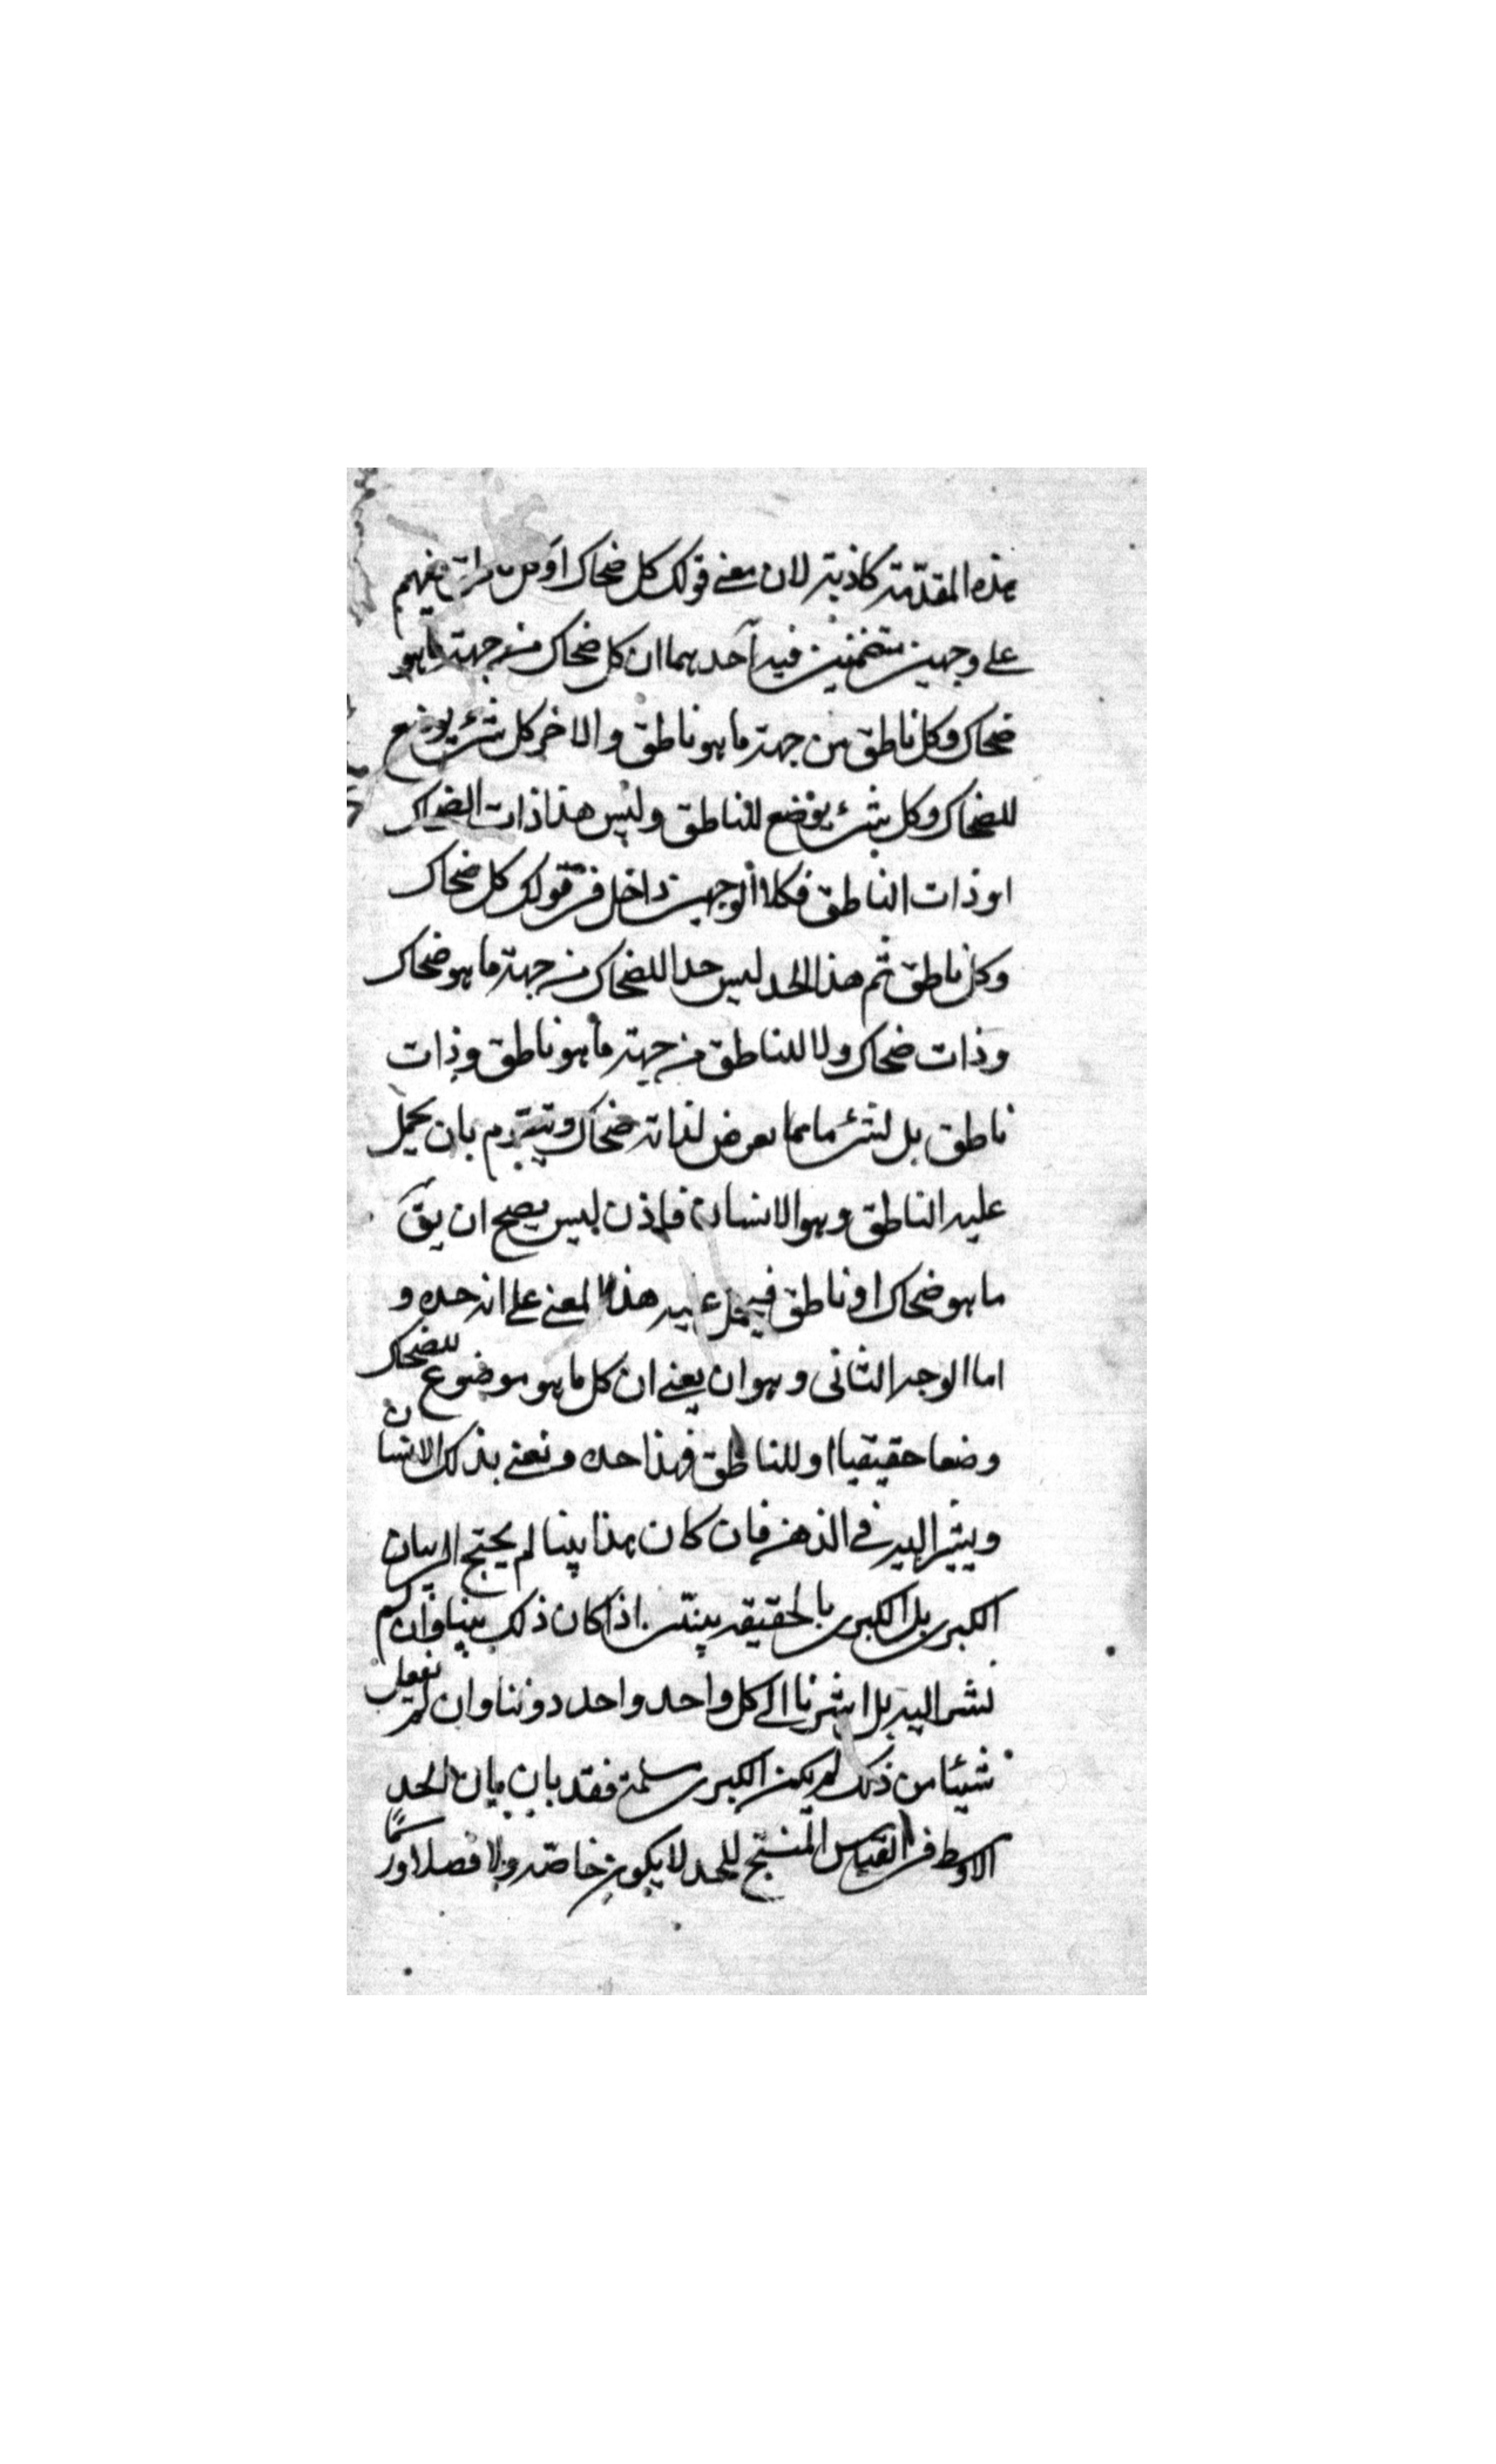 هذه المقدّمة كاذبة لان معنى قولك كل ضحاك او كل ناطق يفهم
على وجهين متضمنين فيه احدهما ان كل ضحاك من جهة ما هو
ضحاك وكل ناطق من جهة ما هو ناطق والاخر كل شئ يوضع
للضحاك وكل شئ يوضع للناطق وليس هذا ذات الضحاك
او ذات الناطق فكلا الوجهين داخل فى قولك كل ضحاك
وكل ناطق ثم هذا الحد ليس حدا للضحاك من جهة ما هو ضحاك
وذات ضحاك ولا للناطق من جهة ما هو ناطق وذات
ناطق بل لشئ ما مما يعرض لذاته ضحاك ويتقوم بان يحمل
عليه الناطق وهو الانسان فاذن ليس يصح ان يقَ
ما هو ضحاك او ناطق فيحمل عليه هذا المعنى على انه حده و
اما الوجه الثانى وهو ان يعنى ان كل ما هو موضوع للضحاك
وضعا حقيقيا او للناطق فهذا حده ونعنى بذلك الانسان
ويشير اليه فى الذهن فان كان هذا بينا لم يحتج الى بيان
الكبرى بل الكبرى بالحقيقه بينة اذا كان ذلك بينا وان لم
نشر اليه بل اشرنا الى كل واحد واحد دوننا وان لم نفعل
شيئا من ذلك لم يكن الكبرى مسلمة فقد بان بيان الحد
الاوسط فى القياس المنتج للحد لا يكون خاصّه ولا فصلا ورسما